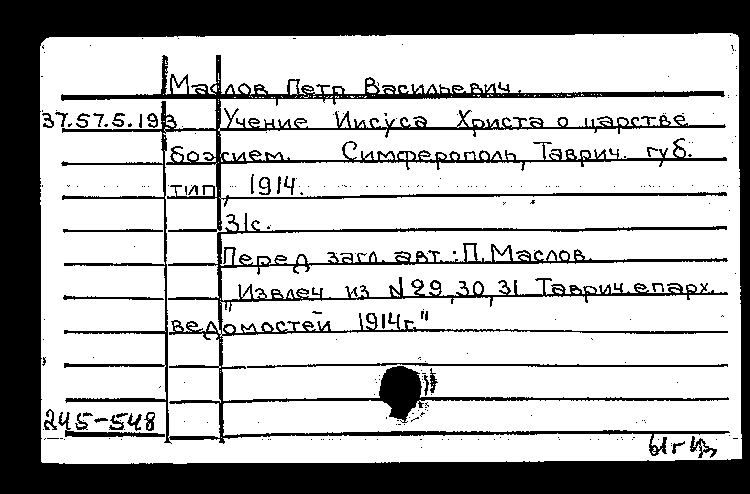 Маслов, Петр Васильевич.
37.57.5.193 Учение Иисуса Христа о царстве
божием. Симферополь, Таврич. губ.
тип., 1914.
31с.
Перед загл. авт.: П. Маслов.
"Извлеч. из N 29, 30, 31 Таврич. епарх.
ведомостей 1914г."
245-548
61г